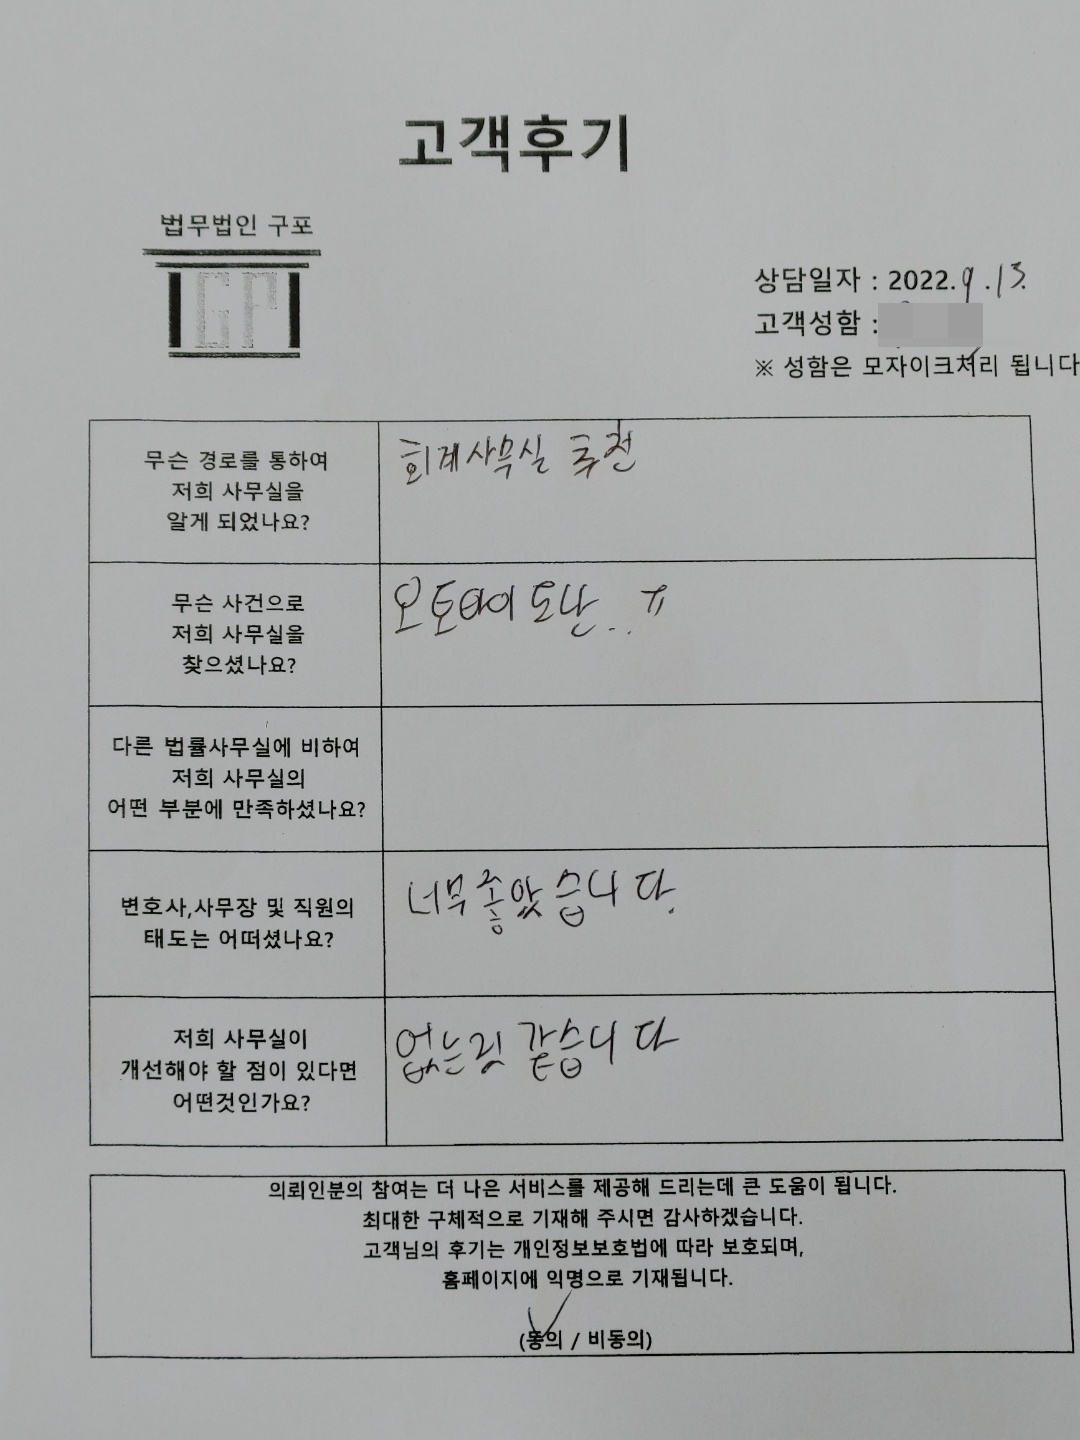 고객후기
법무법인 구포
GP
상담일자 : 2022.9.13.
고객성함 :
※ 성함은 모자이크처리 됩니다
무슨 경로를 통하여
저희 사무실을
알게 되었나요?
회계사무실 추천
무슨 사건으로
저희 사무실을
찾으셨나요?
오토바이 도난.. ㅠ
다른 법률사무실에 비하여
저희 사무실의
어떤 부분에 만족하셨나요?
변호사,사무장 및 직원의
태도는 어떠셨나요?
너무 좋았습니다.
저희 사무실이
개선해야 할 점이 있다면
어떤것인가요?
없는것 같습니다
의뢰인분의 참여는 더 나은 서비스를 제공해 드리는데 큰 도움이 됩니다.
최대한 구체적으로 기재해 주시면 감사하겠습니다.
고객님의 후기는 개인정보보호법에 따라 보호되며,
홈페이지에 익명으로 기재됩니다.
(동의 / 비동의)